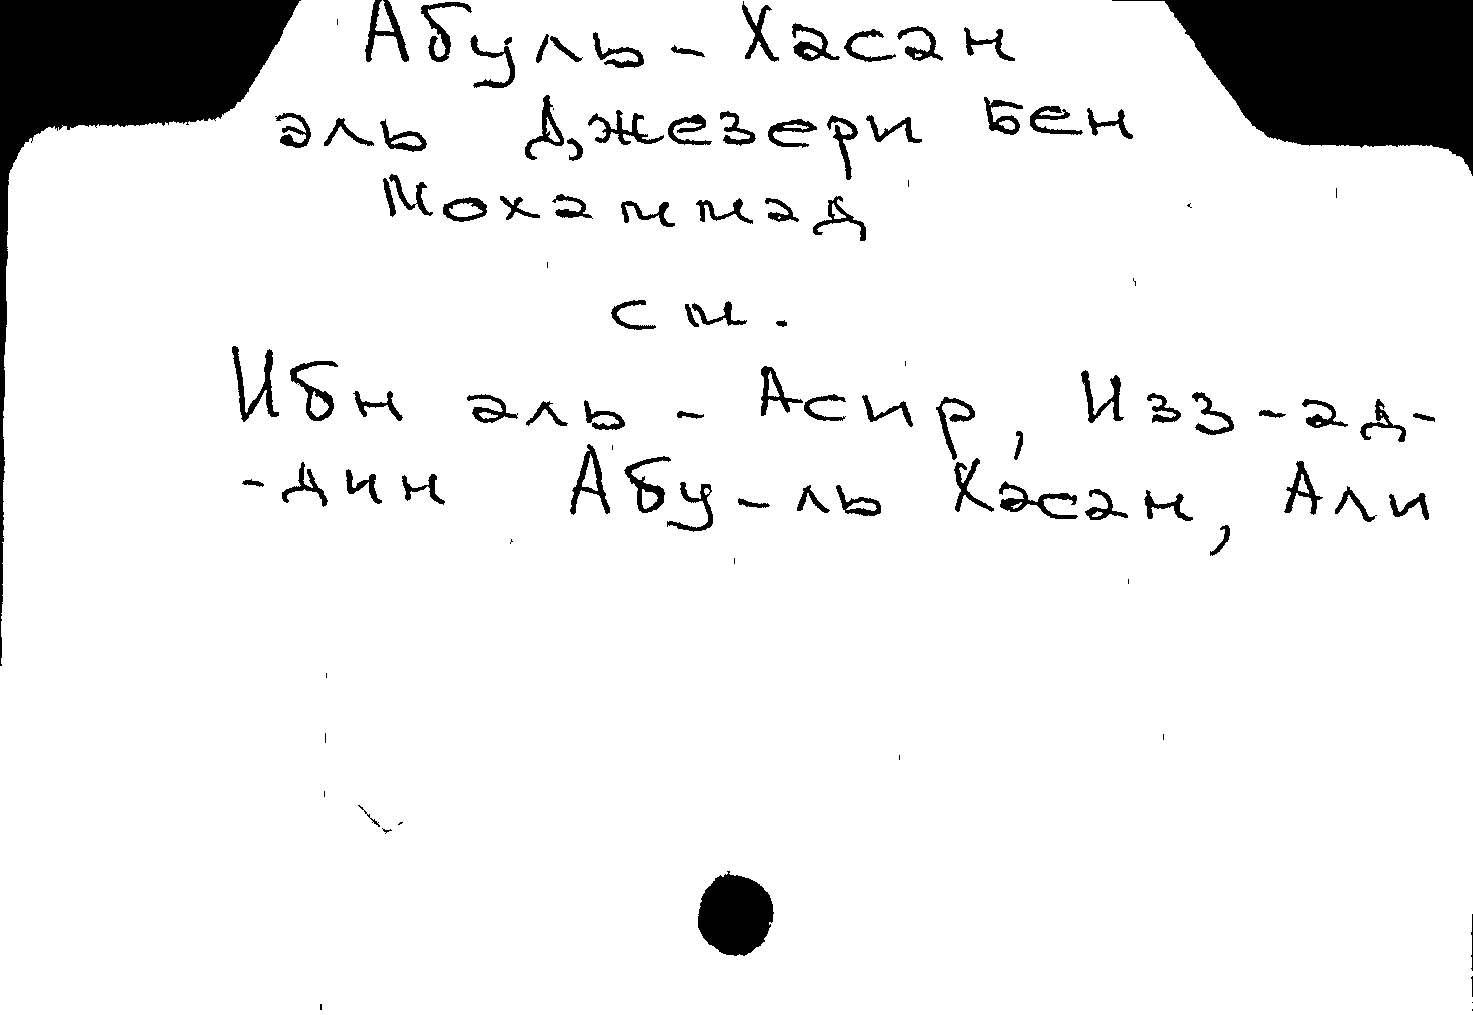 Абуль-Хасан
эль Джезери Бен
Мохаммад
см.
Ибн аль-Асир, Изз-ад-
-дин Абу-ль Хасан, Али